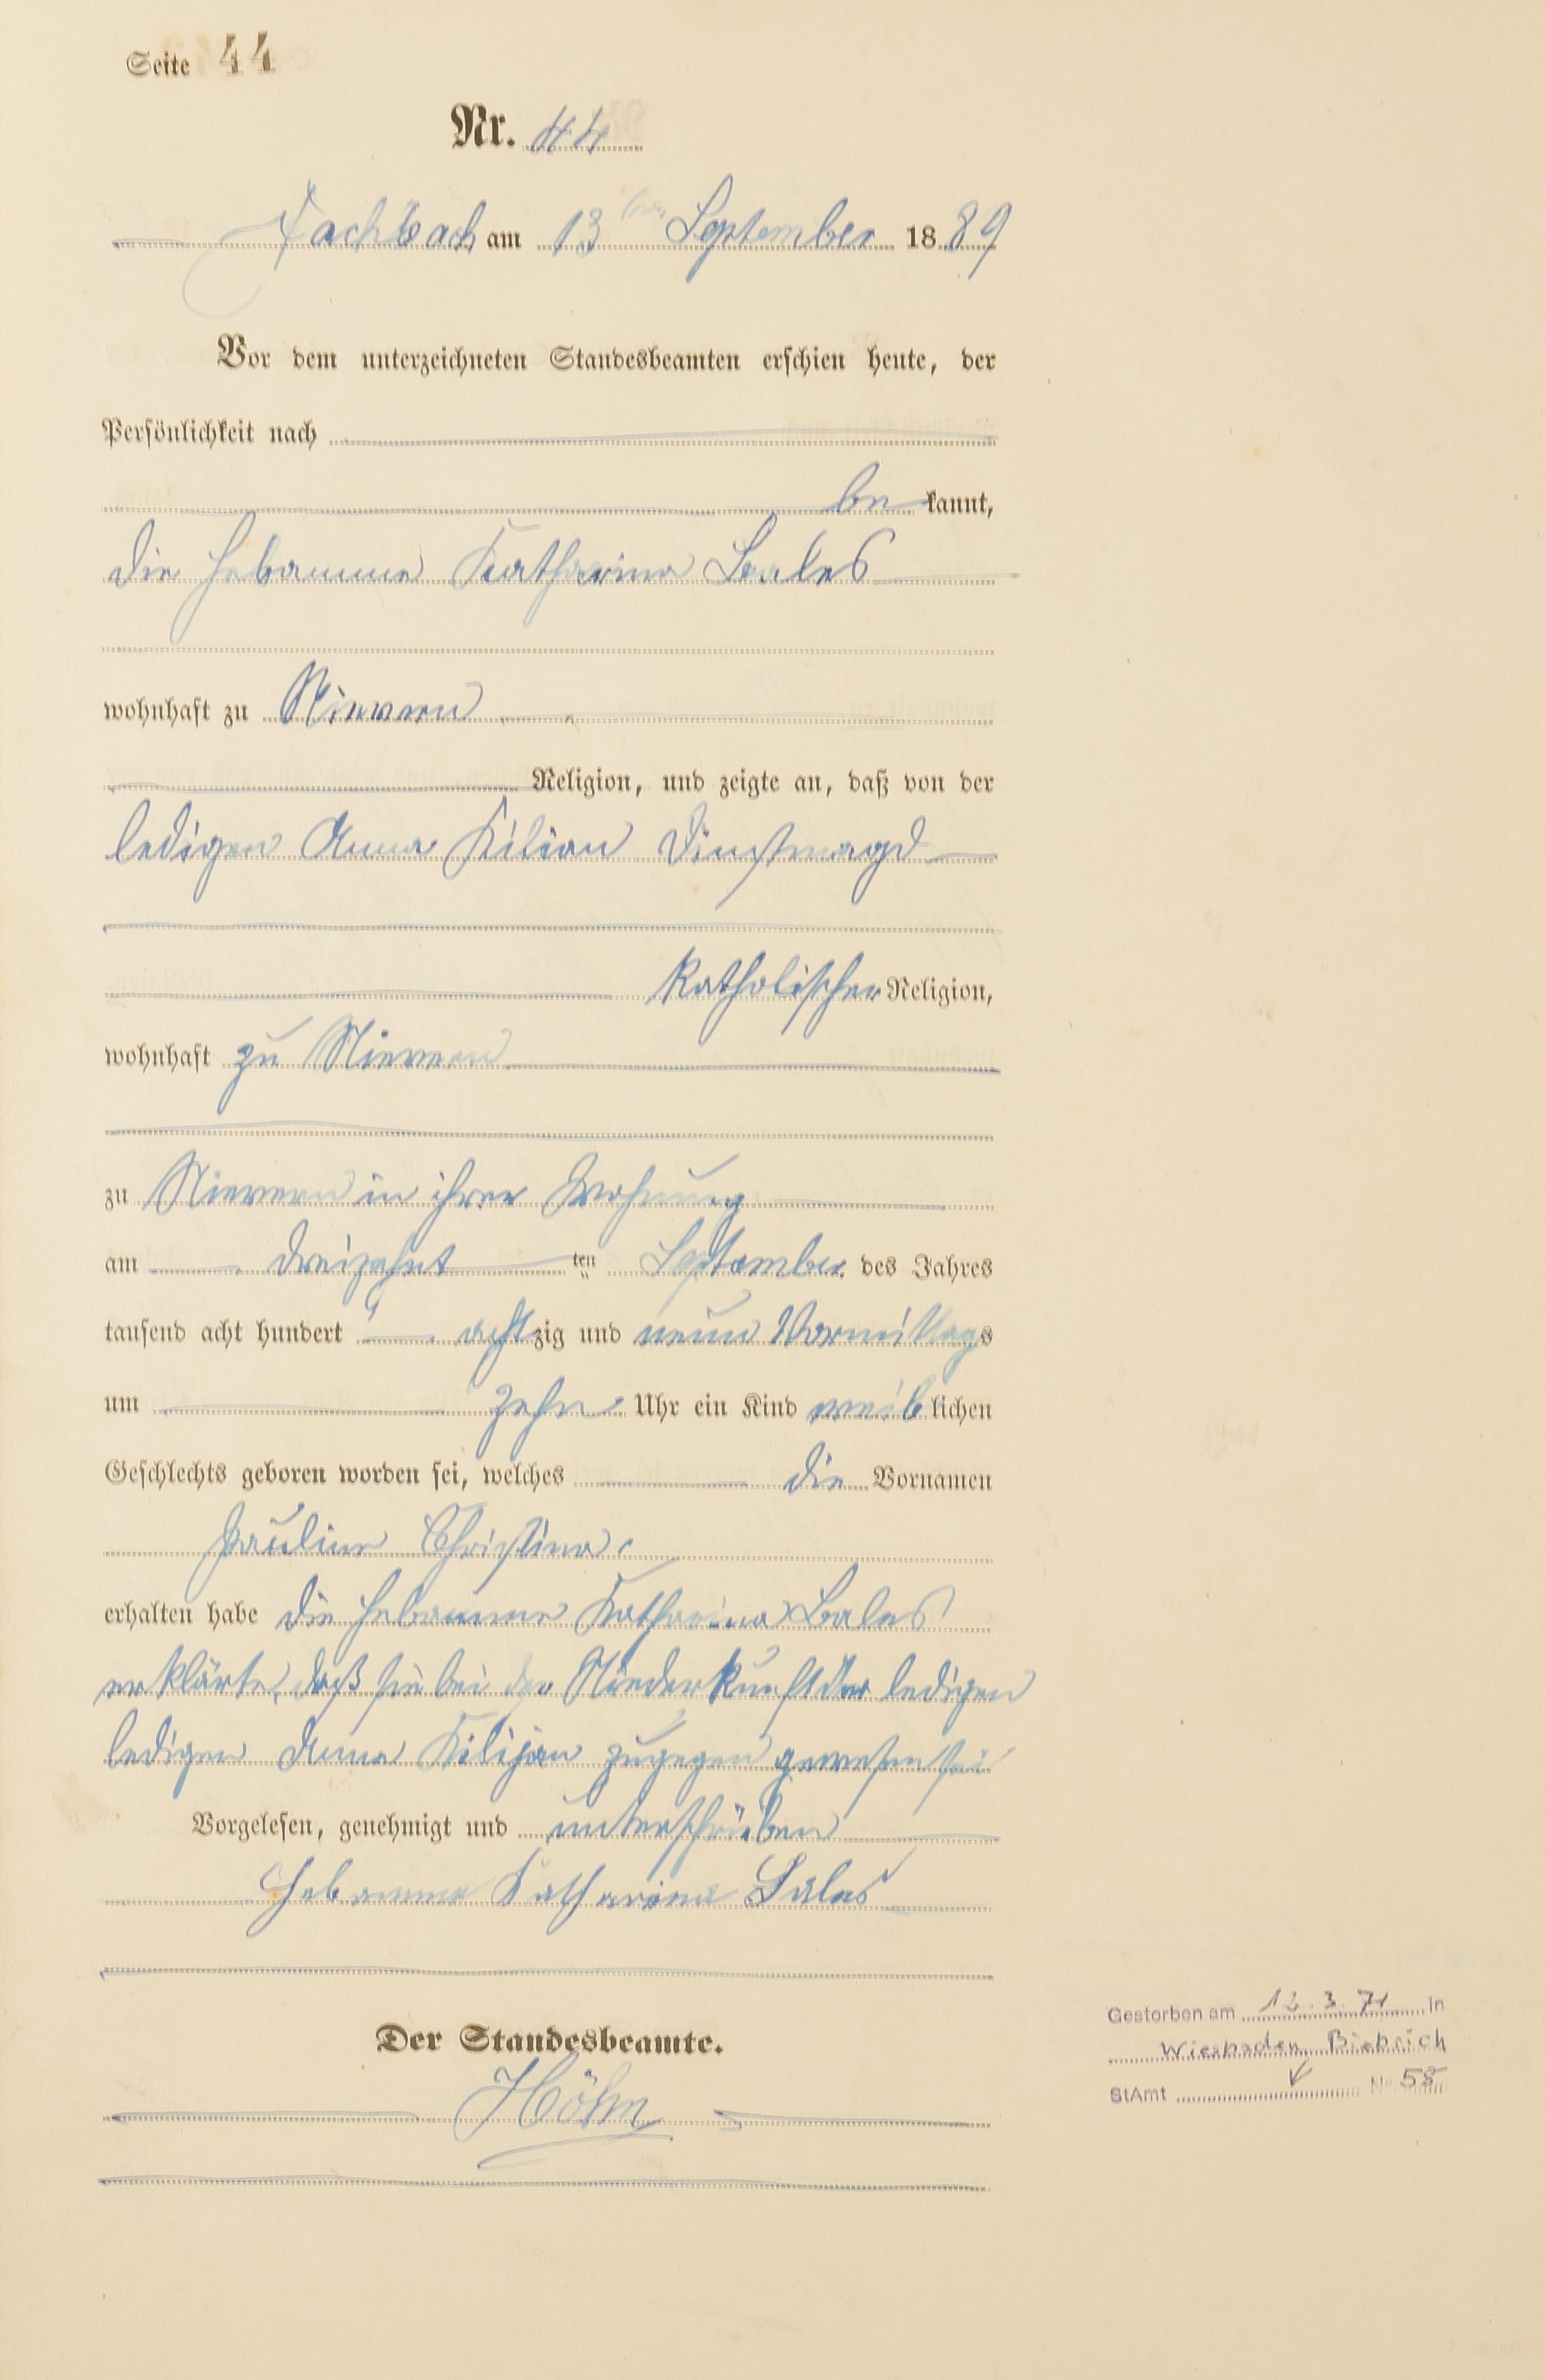 Seite 44
Nr. 44
Fachbach am 13ten September 1889
Vor dem unterzeichneten Standesbeamten erschien heute, der
Persönlichkeit nach
be kannt,
die Hebamme Katharina Bales
wohnhaft zu Nievern
Religion, und zeigte an, daß von der
ledigen Anna Kilian Dinstmagd
katholischer Religion,
wohnhaft zu Nievern
zu Nievern in ihrer Wohnung
am dreizehnt ten September des Jahres
tausend acht hundert achtzig und neun Vormittags
um zehn Uhr ein Kind weiblichen
Geschlechts geboren worden sei, welches die Vornamen
Pauline Christina
erhalten habe die Hebamme Katharina Bales
erklärte, daß sie bei der Niederkunft der ledigen
ledigen Anna Kilijan zugegen gewesen sei
Vorgelesen, genehmigt und unterschrieben
Hebamme Katharina Bales
Der Standesbeamte.
Höhn
Gestorben am 12.3.71 in
Wiesbaden Biebrich
StAmt Nr. 58